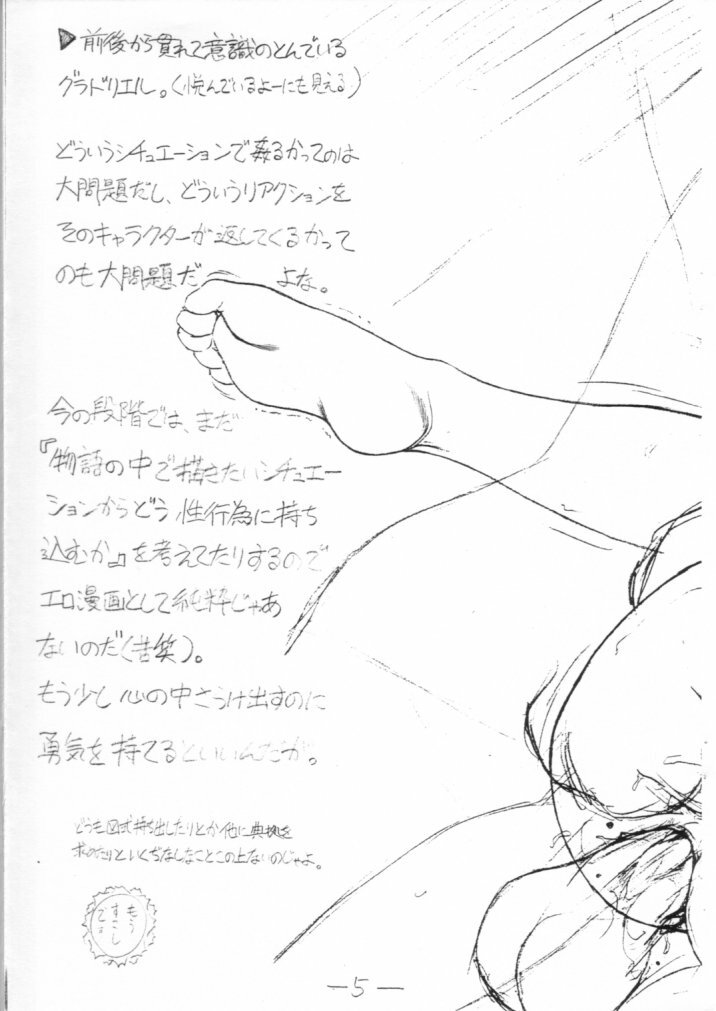 ▶前後から貫れて意識のとんでいる
グラドリエル。(悦んでいるよーにも見える)
どういうシチュエーションで姦るかってのは
大問題だし、どういうリアクションを
そのキャラクターが返してくるかって
のも大問題だ よな。
今の段階では、まだ
『物語の中で描きたいシチュエー
ションからどう性行為に持ち
込むか』を考えてたりするので
エロ漫画として純粋じゃあ
ないのだ(苦笑)。
もう少し心の中さらけ出すのに
勇気を持てるといいんだが。
どうも図式持ち出したりとか他に典拠を
求めたりといくぢなしなことこの上ないのじゃよ。
もう
すこし
です
—5—